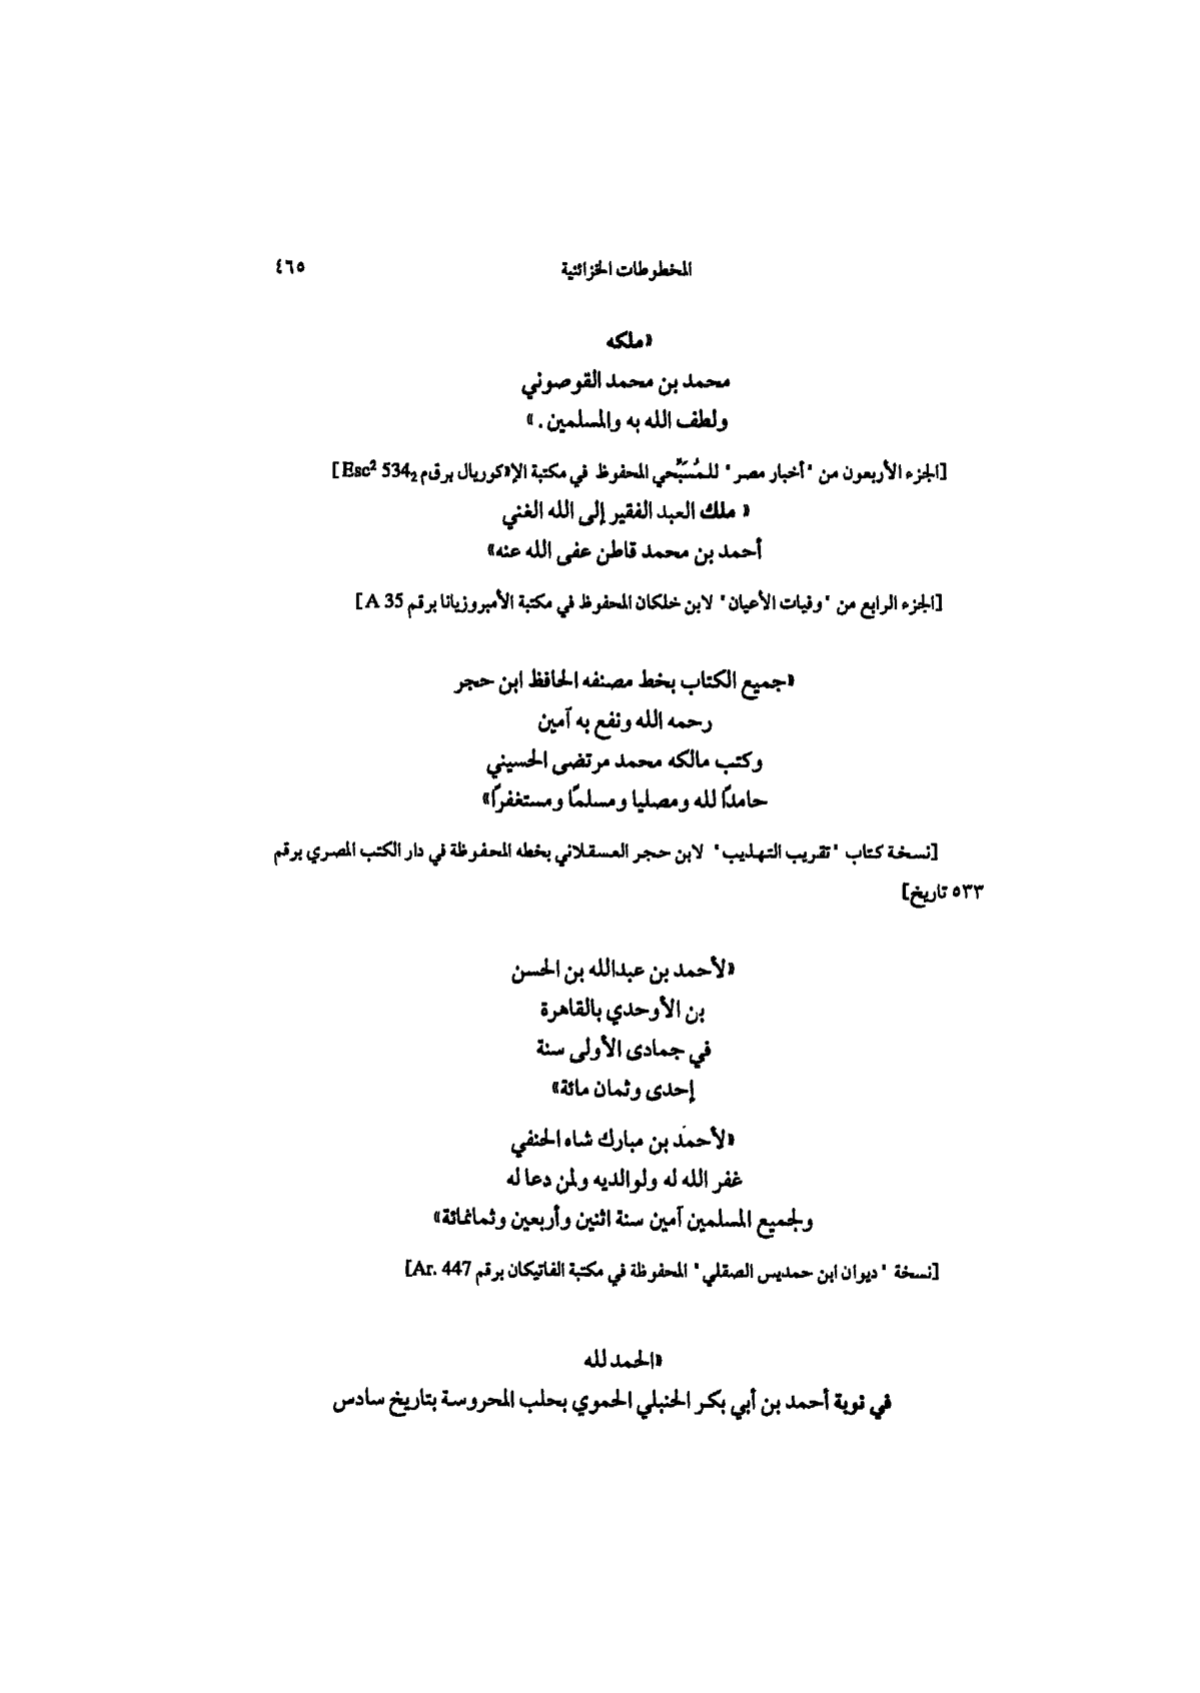 المخطوطات الخزائنية ٤٦٥
«ملكه
محمد بن محمد القوصوني
ولطف الله به والمسلمين . »
[الجزء الأربعون من "أخبار مصر" للـمُسَبِّحي المحفوظ في مكتبة الإ«كوريال برق»م Esc² 534₂ ]
« ملك العبد الفقير إلى الله الغني
أحمد بن محمد قاطن عفى الله عنه»
[الجزء الرابع من "وفيات الأعيان" لابن خلكان المحفوظ في مكتبة الأمبروزيانا برقم A 35 ]
«جميع الكتاب بخط مصنفه الحافظ ابن حجر
رحمه الله ونفع به آمين
وكتب مالكه محمد مرتضى الحسيني
حامدًا لله ومصليا ومسلمًا ومستغفرًا»
[نسخة كتاب "تقريب التهذيب" لابن حجر العسقلاني بخطه المحفوظة في دار الكتب المصري برقم
٥٣٣ تاريخ]
«لأحمد بن عبدالله بن الحسن
بن الأوحدي بالقاهرة
في جمادى الأولى سنة
إحدى وثمان مائة»
«لأحمَد بن مبارك شاه الحنفي
غفر الله له ولوالديه ولمن دعا له
ولجميع المسلمين آمين سنة اثنين وأربعين وثمانمائة»
[نسخة "ديوان ابن حمديس الصقلي" المحفوظة في مكتبة الفاتيكان برقم Ar. 447]
«الحمد لله
في نوبة أحمد بن أبي بكر الحنبلي الحموي بحلب المحروسة بتاريخ سادس